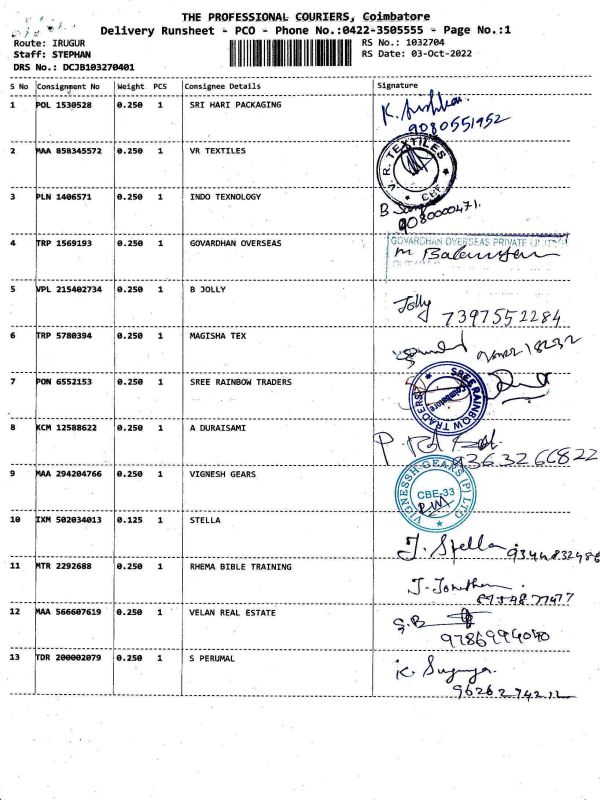 THE PROFESSIONAL COURIERS, Coimbatore
Delivery Runsheet - PCO - Phone No.:0422-3505555 - Page No.:1
Route: IRUGUR RS No.: 1032704
Staff: STEPHAN RS Date: 03-Oct-2022
DRS No.: DCJB103270401
S No Consignment No Weight PCS Consignee Details Signature
1 POL 1530528 0.250 1 SRI HARI PACKAGING
9080551952
2 MAA 858345572 0.250 1 VR TEXTILES
V. R. TEXTILES CBE
3 PLN 1406571 0.250 1 INDO TEXNOLOGY
9080000471.
4 TRP 1569193 0.250 1 GOVARDHAN OVERSEAS
GOVARDHAN OVERSEAS PRIVATE
5 VPL 215402734 0.250 1 B JOLLY
Jolly
7397552284
6 TRP 5780394 0.250 1 MAGISHA TEX
7 PON 6552153 0.250 1 SREE RAINBOW TRADERS
SREE RAINBOW TRADERS Coimbatore
8 KCM 12588622 0.250 1 A DURAISAMI
9363266822
9 MAA 294204766 0.250 1 VIGNESH GEARS
VIGNESSH GEARS (P) LTD CBE-33
10 IXM 502034013 0.125 1 STELLA
J. Stella 9344832486
11 MTR 2292688 0.250 1 RHEMA BIBLE TRAINING
12 MAA 566607619 0.250 1 VELAN REAL ESTATE
S.B
9786994040
13 TDR 200002079 0.250 1 S PERUMAL